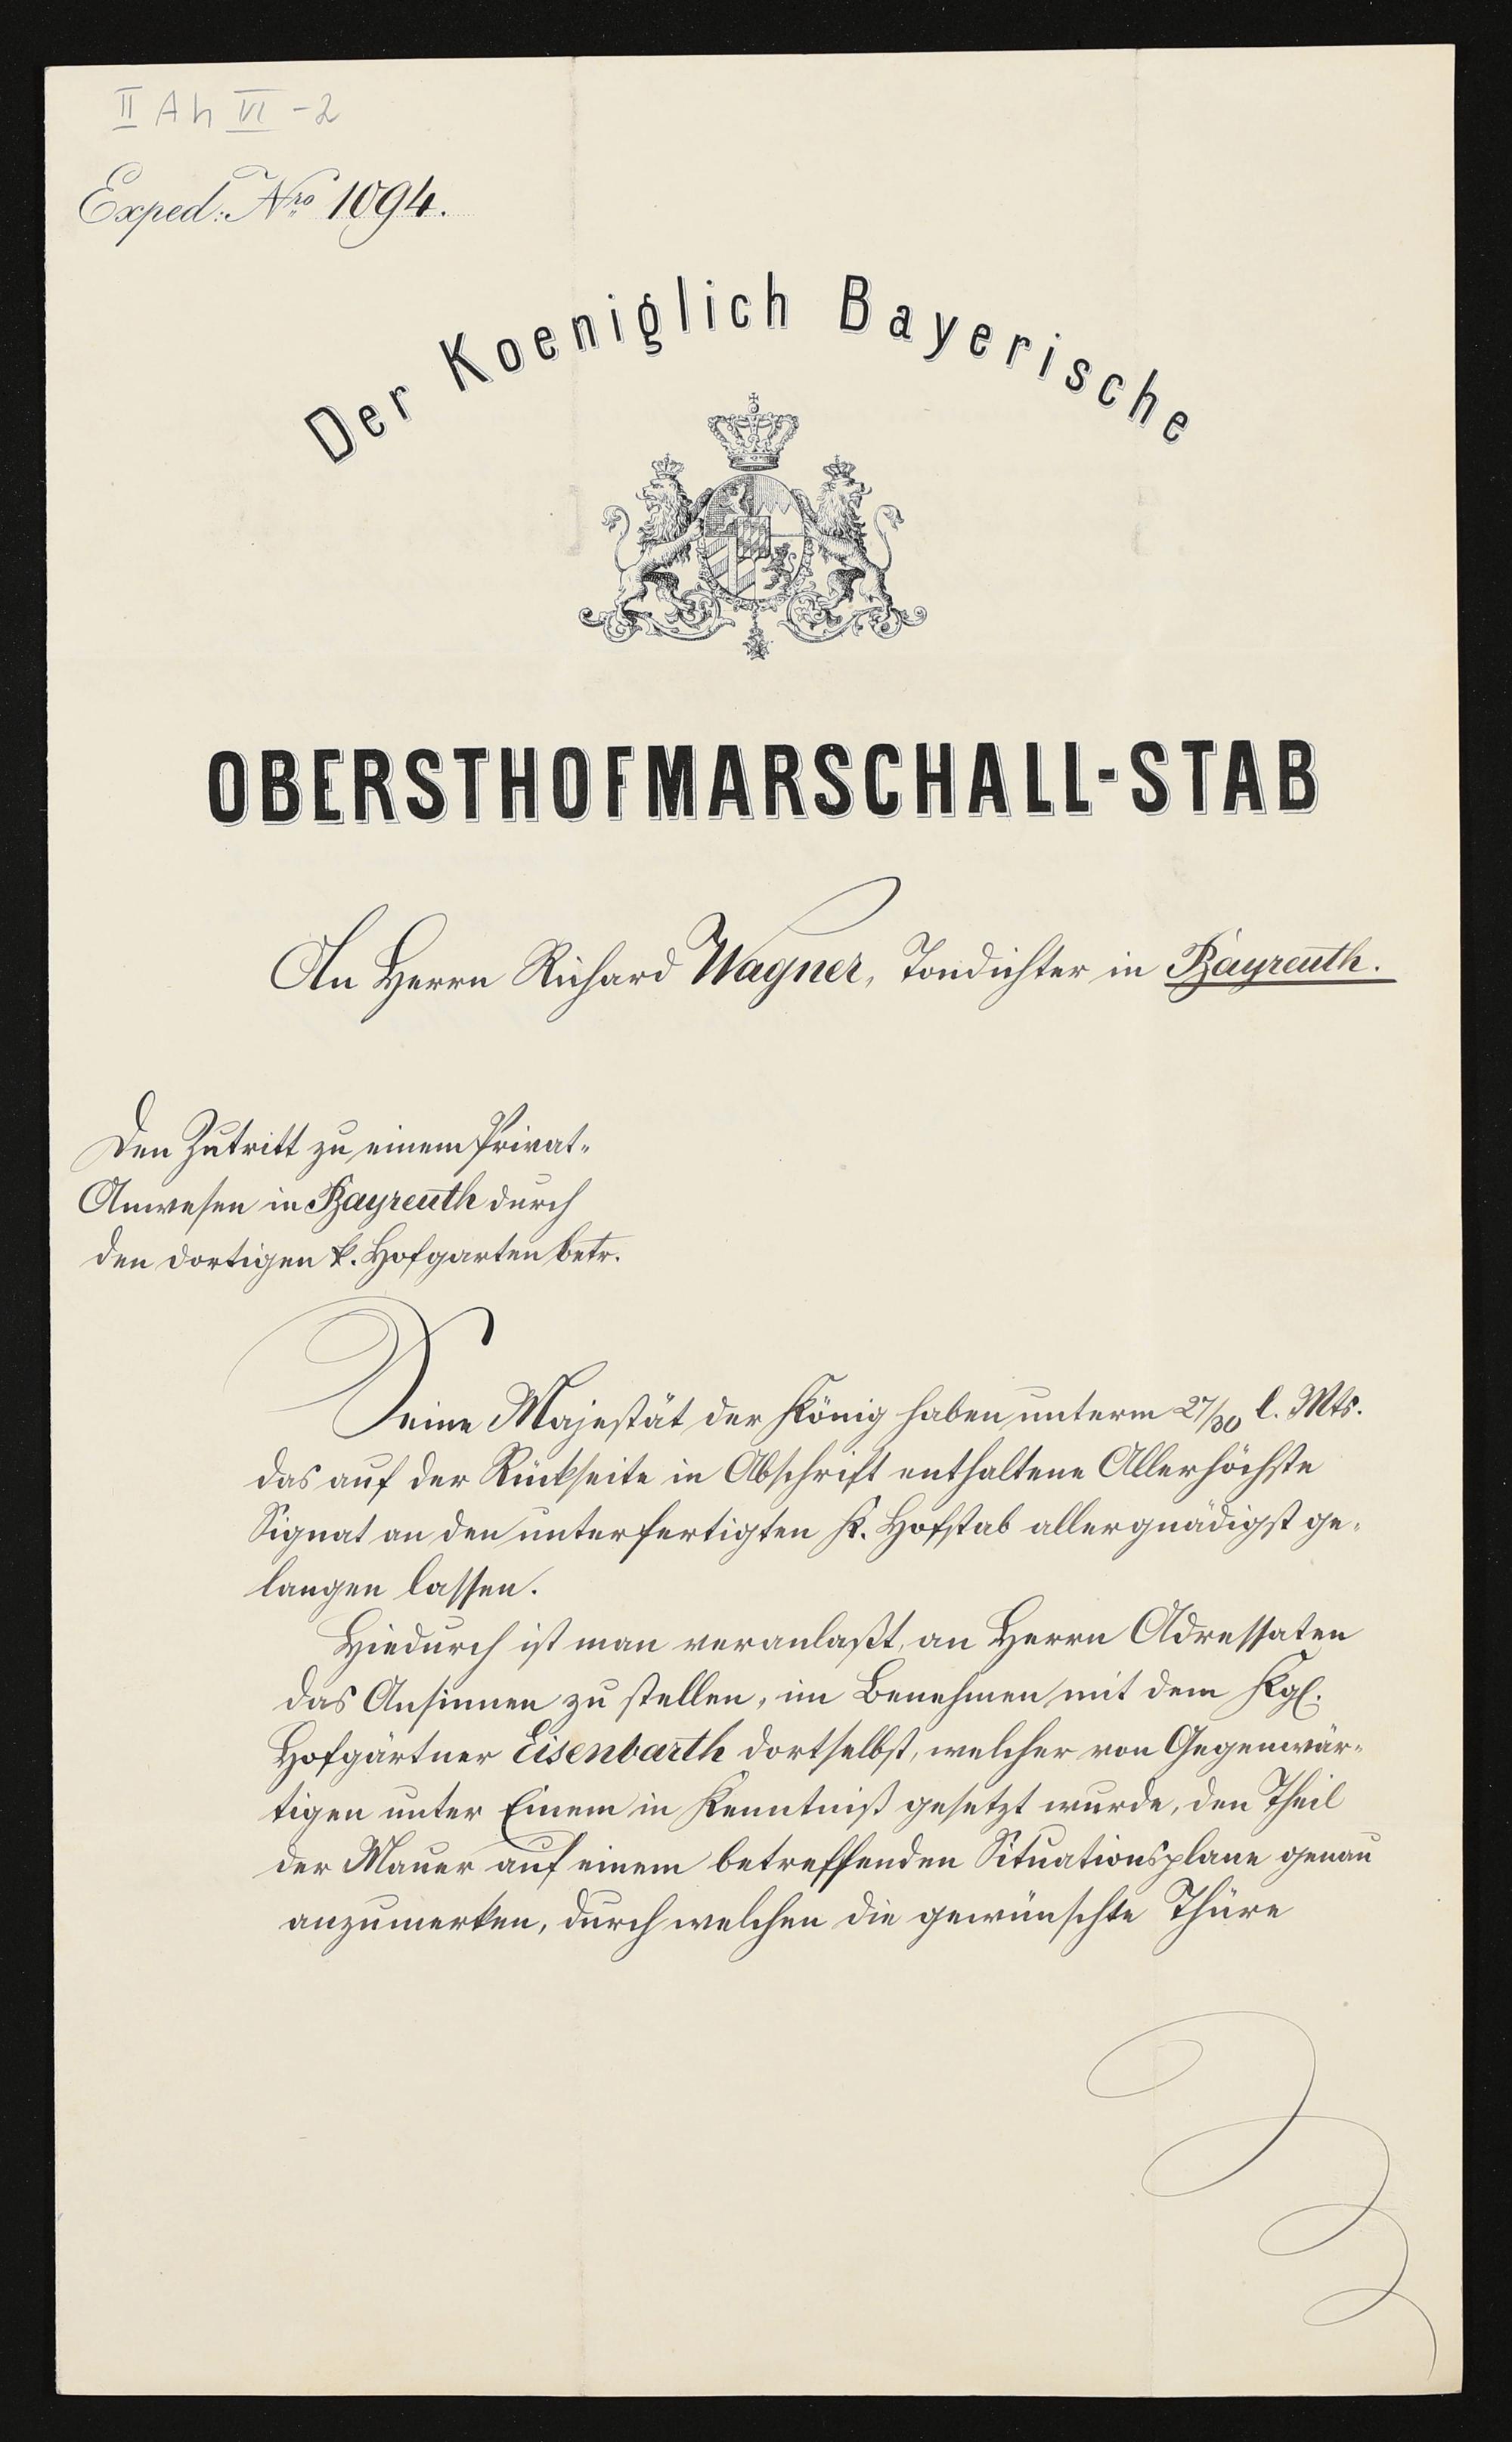 II A h VI - 2
Exped: Nro 1094.
Der Koeniglich Bayerische
OBERSTHOFMARSCHALL-STAB
An Herrn Richard Wagner, Tondichter in Bayreuth.
Den Zutritt zu einem Privat-
Anwesen in Bayreuth durch
den dortigen k. Hofgarten betr.
Seine Majestät der König haben unterm 27/30 l. Mts.
das auf der Rückseite in Abschrift enthaltene Allerhöchste
Signat an den unterfertigten K. Hofstab allergnädigst ge-
langen lassen.
Hiedurch ist man veranlaßt, an Herrn Adressaten
das Ansinnen zu stellen, im Benehmen mit dem Kgl.
Hofgärtner Eisenbarth dortselbst, welcher von Gegenwär-
tigen unter Einem in Kenntniß gesetzt wurde, den Theil
der Mauer auf einem betreffenden Situationsplane genau
anzumerken, durch welchen die gewünschte Thüre